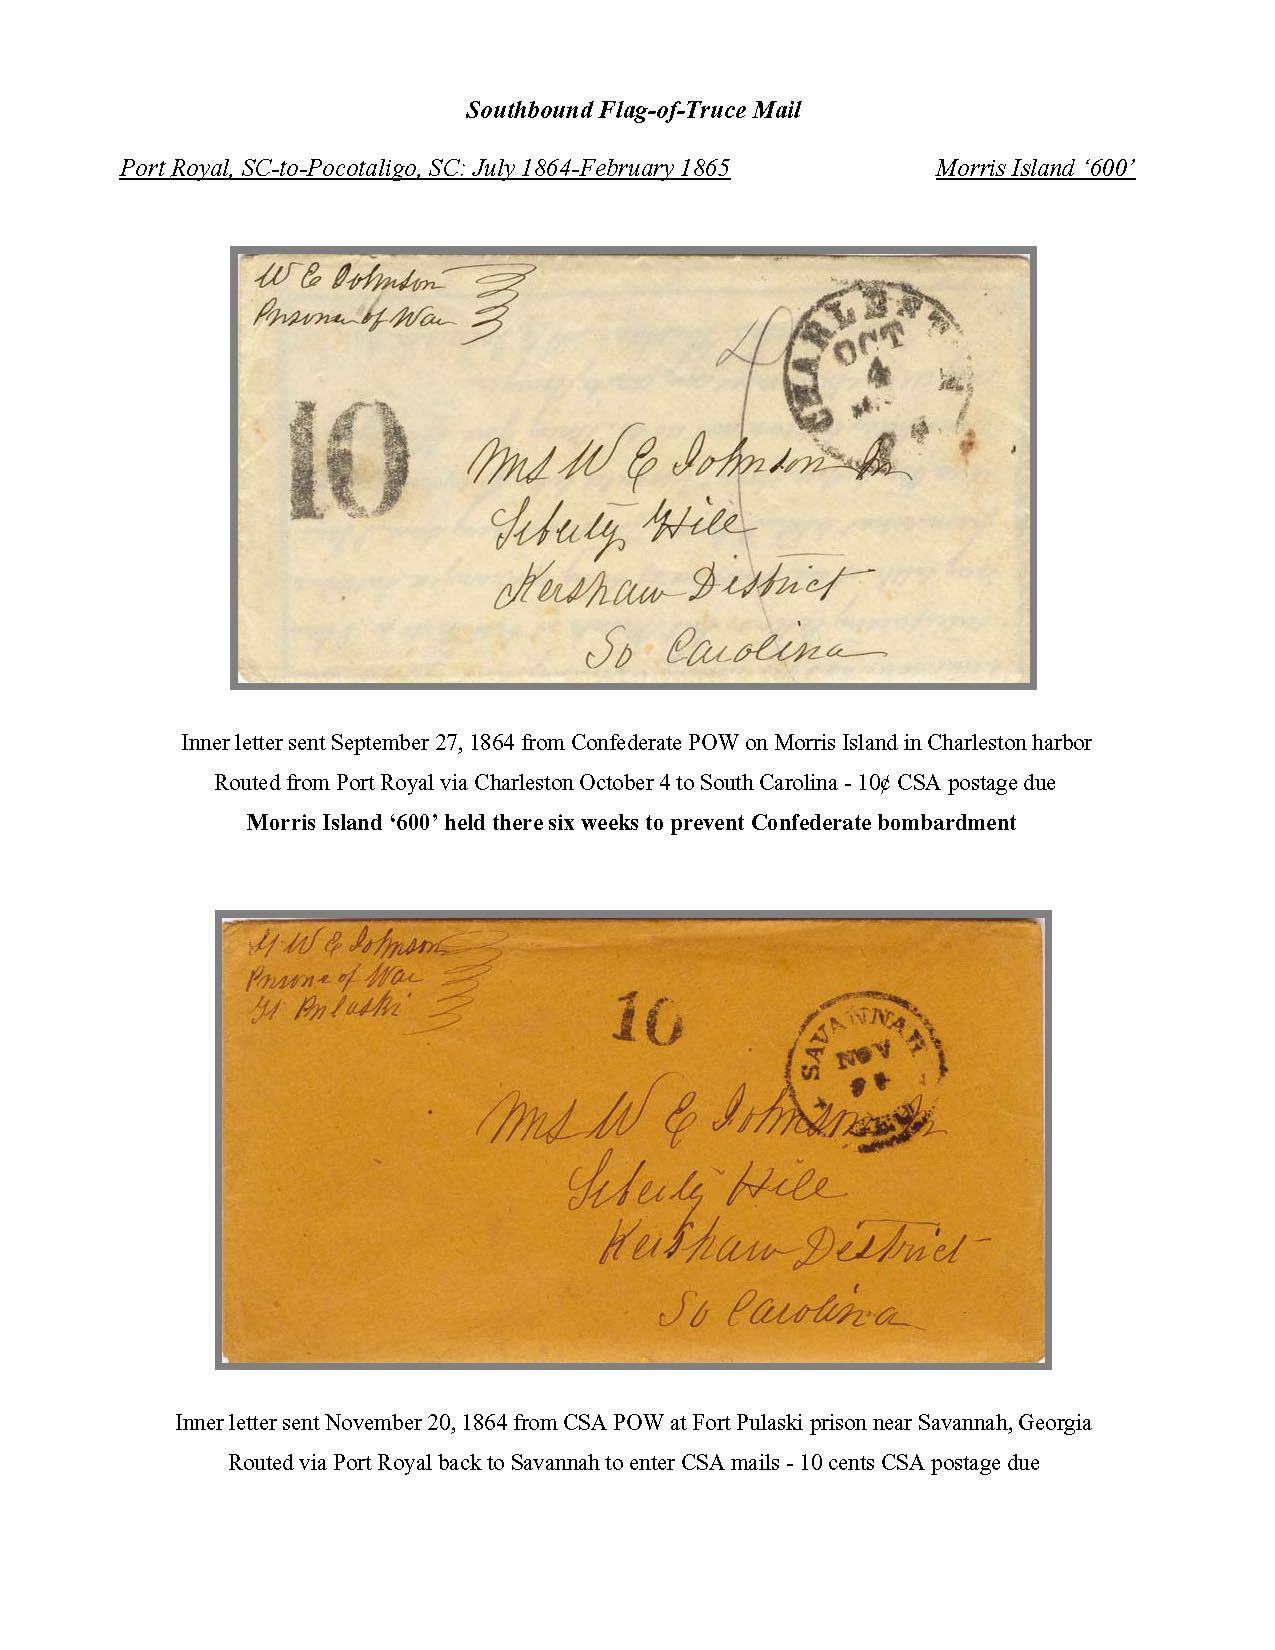 Southbound Flag-of-Truce Mail
Port Royal, SC-to-Pocotaligo, SC: July 1864-February 1865 Morris Island ‘600’
W E Johnson
Prisoner of War
CHARLEST
OCT
4
10
Mrs W E Johnson Jr
Liberty Hill
Kershaw District
So Carolina
Inner letter sent September 27, 1864 from Confederate POW on Morris Island in Charleston harbor
Routed from Port Royal via Charleston October 4 to South Carolina - 10¢ CSA postage due
Morris Island ‘600’ held there six weeks to prevent Confederate bombardment
Lt W E Johnson
Prisone of War
Ft Pulaski
10
SAVANNAH
NOV
Mrs W E Johnson Jr
Liberty Hill
Kershaw District
So Carolina
Inner letter sent November 20, 1864 from CSA POW at Fort Pulaski prison near Savannah, Georgia
Routed via Port Royal back to Savannah to enter CSA mails - 10 cents CSA postage due